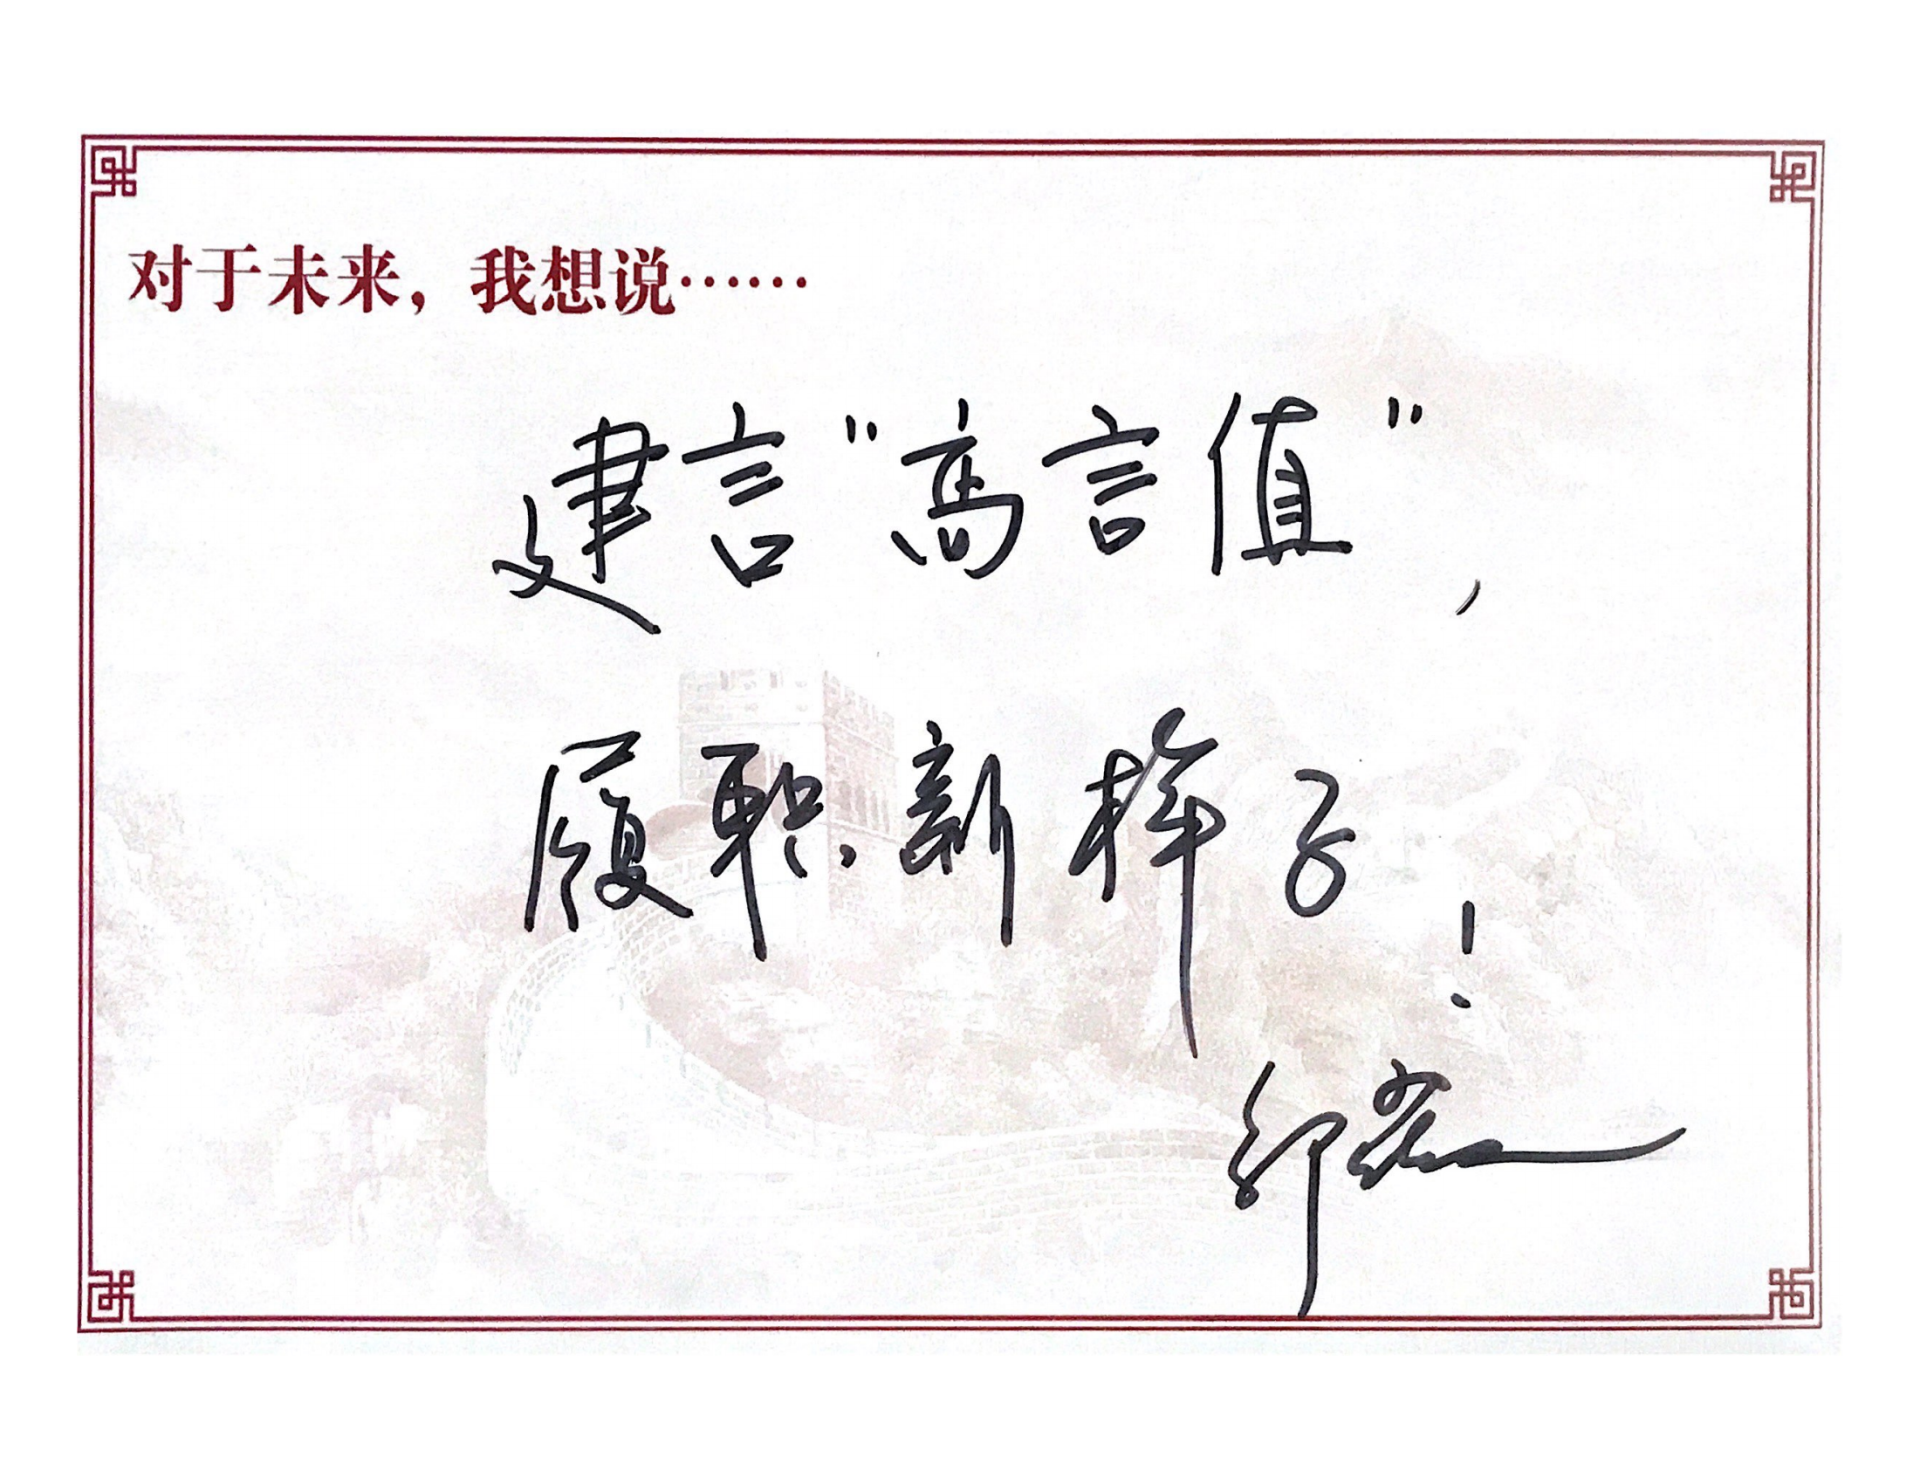 对于未来，我想说……
建言“高言值”，
履职新样子！